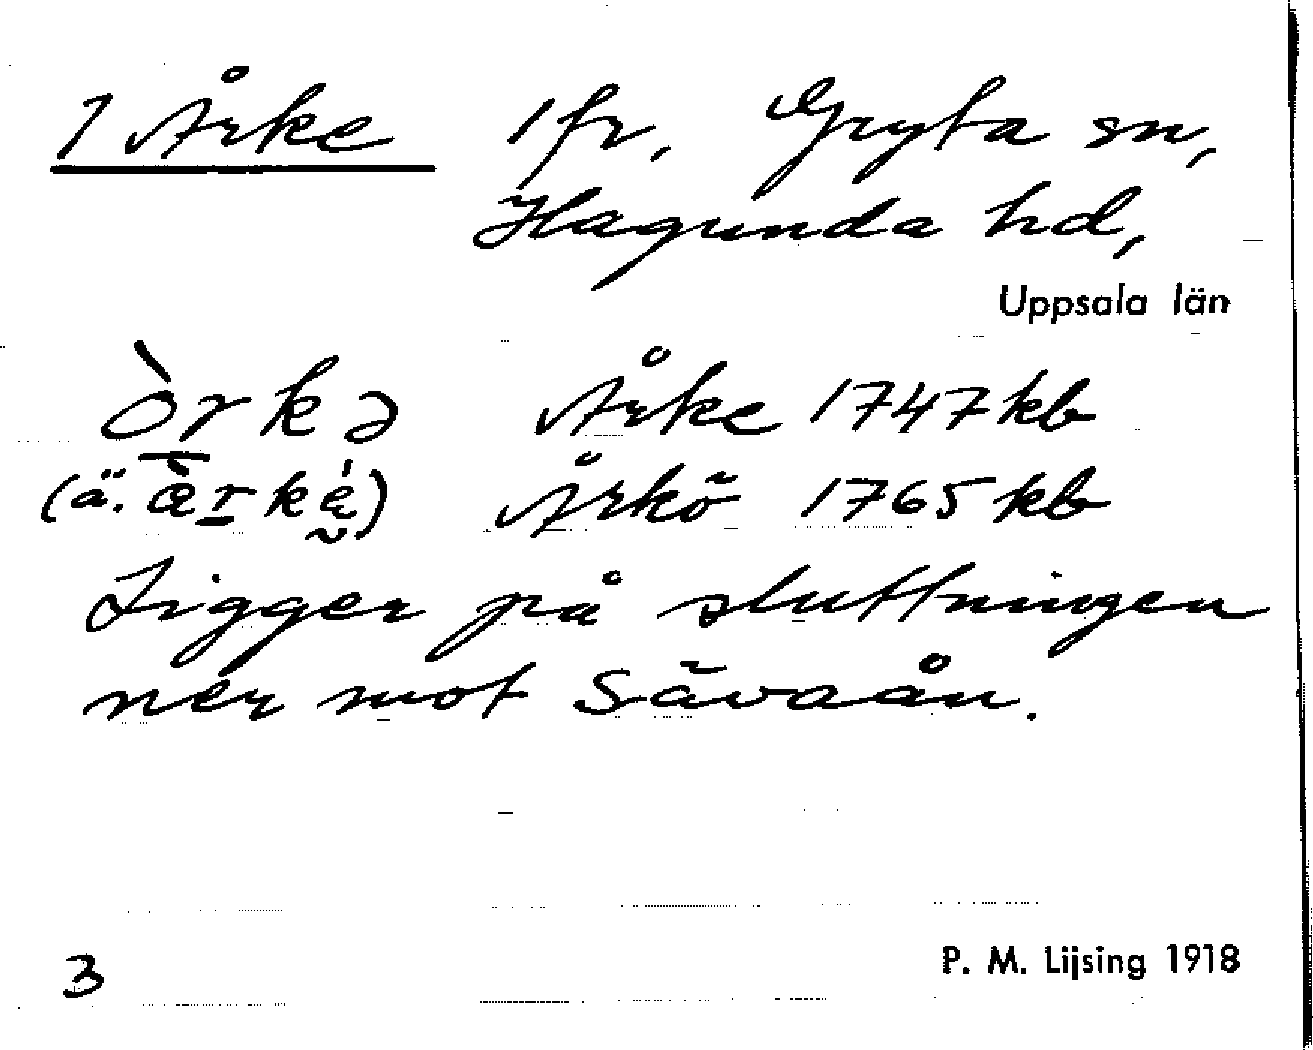 1 Årke 1 fr, Gryta sn,
Hagunda hd,
Uppsala län
òrkə Årke 1747 kb
(ä. àrkè) Årkö 1765 kb
Ligger på sluttningen
ner mot Sävaån.
3 P. M. Lijsing 1918